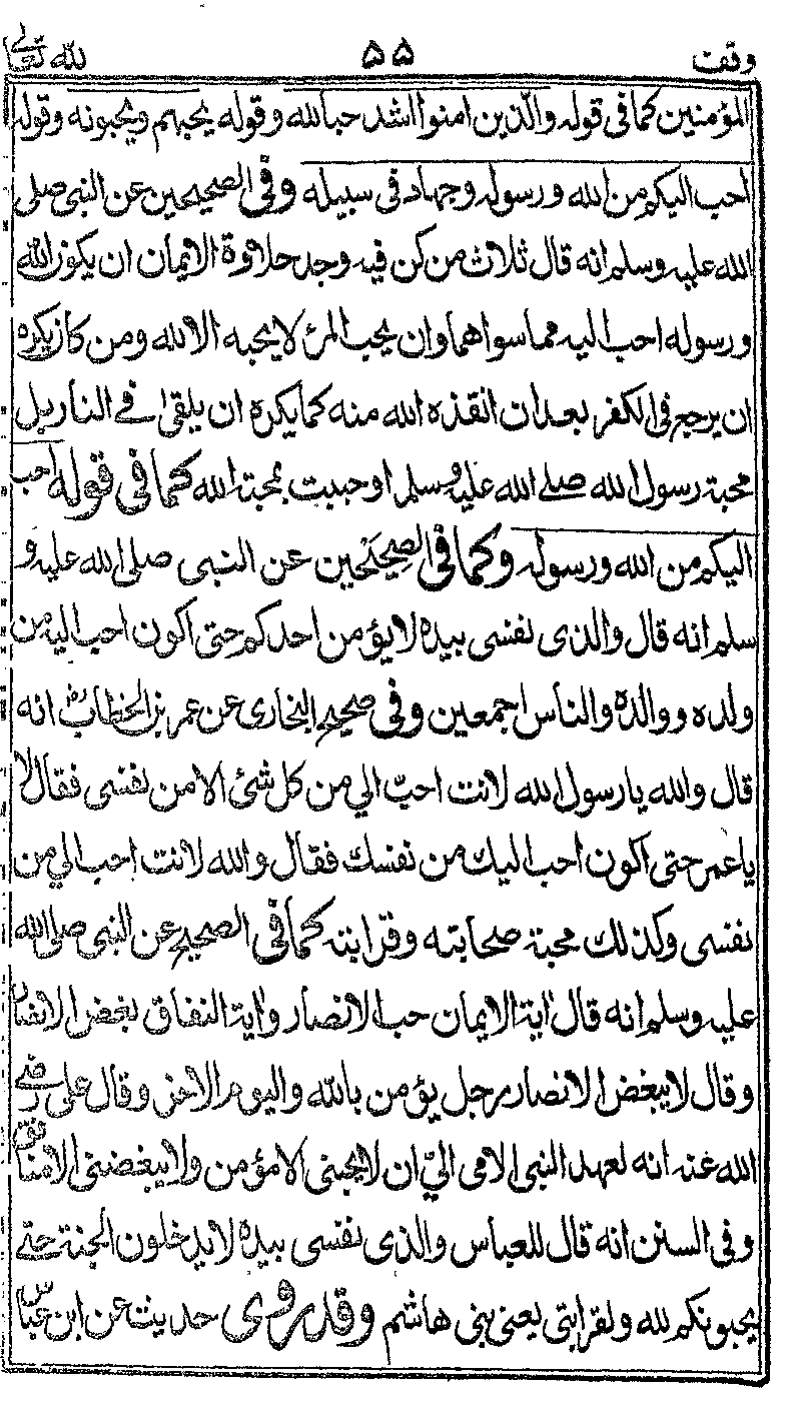 وقف ۵۵ لله تعالى
المؤمنين كما فى قوله والذين امنوا اشد حبا لله وقوله يحبهم ويحبونه وقوله
احب اليكم من الله ورسوله وجهاد فى سبيله وفى الصحيحين عن النبى صلى
الله عليه وسلم انه قال ثلاث من كن فيه وجد حلاوة الايمان ان يكون الله
ورسوله احب اليه مما سواهما وان يحب المرئ لا يحبه الا لله ومن كان يكره
ان يرجع فى الكفر بعد ان انقذه الله منه كما يكره ان يلقى فے النار بل
محبة رسول الله صلے الله عليه وسلم اوحببت لمحبة الله كما فى قوله احب
اليكم من الله ورسوله وكما فى الصحيحين عن النبى صلى الله عليه و
سلم انه قال والذى نفسى بيده لا يؤمن احدكم حتى اكون احب اليه من
ولده ووالده والناس اجمعين وفى صحيح البخارى عن عمر بن الخطاب رض انه
قال والله يا رسول الله لانت احبّ الي من كل شئ الا من نفسى فقال لا
يا عمر حتى اكون احب اليك من نفسك فقال والله لانت احب الي من
نفسى وكذلك محبة صحابته وقرابته كما فى الصحيح عن النبى صلى الله
عليه وسلم انه قال اية الايمان حب الانصار واية النفاق بغض الانصار
وقال لا يبغض الانصار رجل يؤمن بالله واليوم الاخر وقال على رضے
الله عنه انه لعهد النبى الامى اليّ ان لا يحبنى الا مؤمن ولا يبغضنى الا منافق
وفى السنن انه قال للعباس والذى نفسى بيده لا يدخلون الجنة حتے
يحبونكم لله ولقرابتى يعنى بنى هاشم وقد روى حديث عن ابن عباس